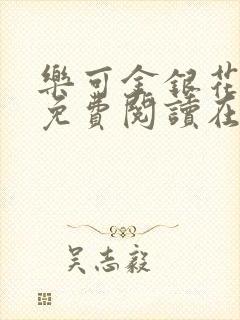 樂可金銀花
免費閱讀在
吳志毅